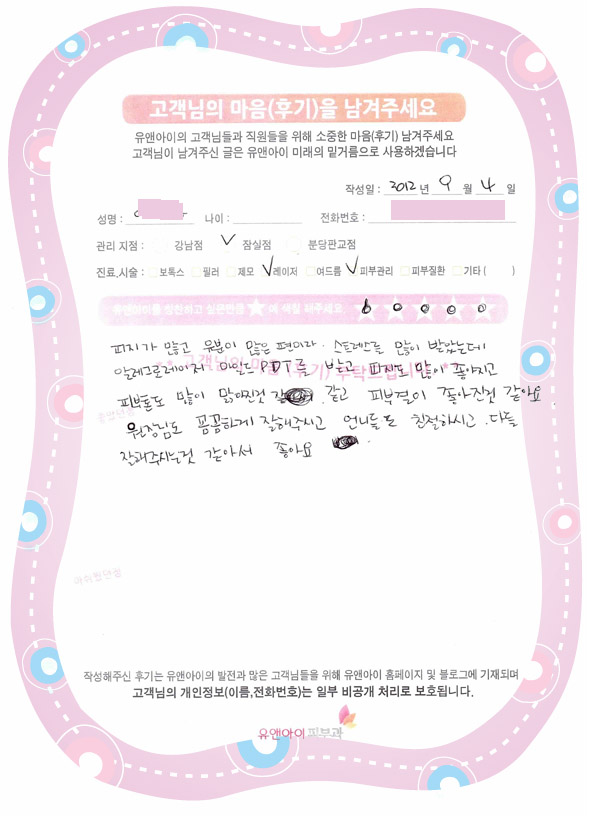 고객님의 마음(후기)을 남겨주세요
유앤아이의 고객님들과 직원들을 위해 소중한 마음(후기) 남겨주세요
고객님이 남겨주신 글은 유앤아이 미래의 밑거름으로 사용하겠습니다
작성일 : 2012 년 9 월 4 일
성명 : 나이 : 전화번호 :
관리 지점 : 강남점 ✓ 잠실점 분당판교점
진료,시술 : 보톡스 필러 제모 ✓레이저 여드름 ✓피부관리 피부질환 기타 ( )
유앤아이를 칭찬하고 싶은만큼 ★ 에 색칠 해주세요
피지가 많고 유분이 많은 편이라. 스트레스를 많이 받았는데
알레그로레이저 마일드PDT를 받고 피지도 많이 좋아지고
피부톤도 많이 맑아진것 같고 피부결이 좋아진것 같아요.
원장님도 꼼꼼하게 잘해주시고 언니들도 친절하시고.다들
잘해주시는것 같아서 좋아요
작성해주신 후기는 유앤아이의 발전과 많은 고객님들을 위해 유앤아이 홈페이지 및 블로그에 기재되며
고객님의 개인정보(이름,전화번호)는 일부 비공개 처리로 보호됩니다.
유앤아이피부과